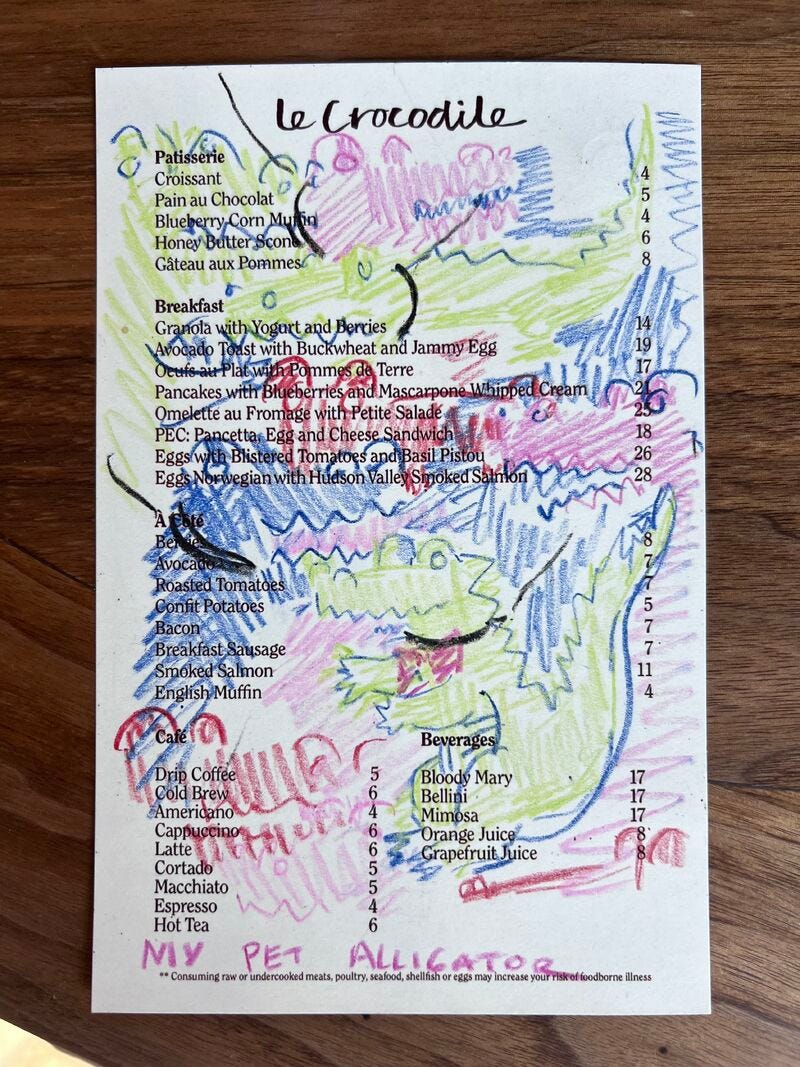 le Crocodile
Patisserie
Croissant 4
Pain au Chocolat 5
Blueberry Corn Muffin 4
Honey Butter Scone 6
Gâteau aux Pommes 8
Breakfast
Granola with Yogurt and Berries 14
Avocado Toast with Buckwheat and Jammy Egg 19
Oeufs au Plat with Pommes de Terre 17
Pancakes with Blueberries and Mascarpone Whipped Cream 21
Omelette au Fromage with Petite Salade 25
PEC: Pancetta, Egg and Cheese Sandwich 18
Eggs with Blistered Tomatoes and Basil Pistou 26
Eggs Norwegian with Hudson Valley Smoked Salmon 28
À Côté
Berries 8
Avocado 7
Roasted Tomatoes 7
Confit Potatoes 5
Bacon 7
Breakfast Sausage 7
Smoked Salmon 11
English Muffin 4
Café
Drip Coffee 5
Cold Brew 6
Americano 4
Cappuccino 6
Latte 6
Cortado 5
Macchiato 5
Espresso 4
Hot Tea 6
Beverages
Bloody Mary 17
Bellini 17
Mimosa 17
Orange Juice 8
Grapefruit Juice 8
MY PET ALLIGATOR
** Consuming raw or undercooked meats, poultry, seafood, shellfish or eggs may increase your risk of foodborne illness